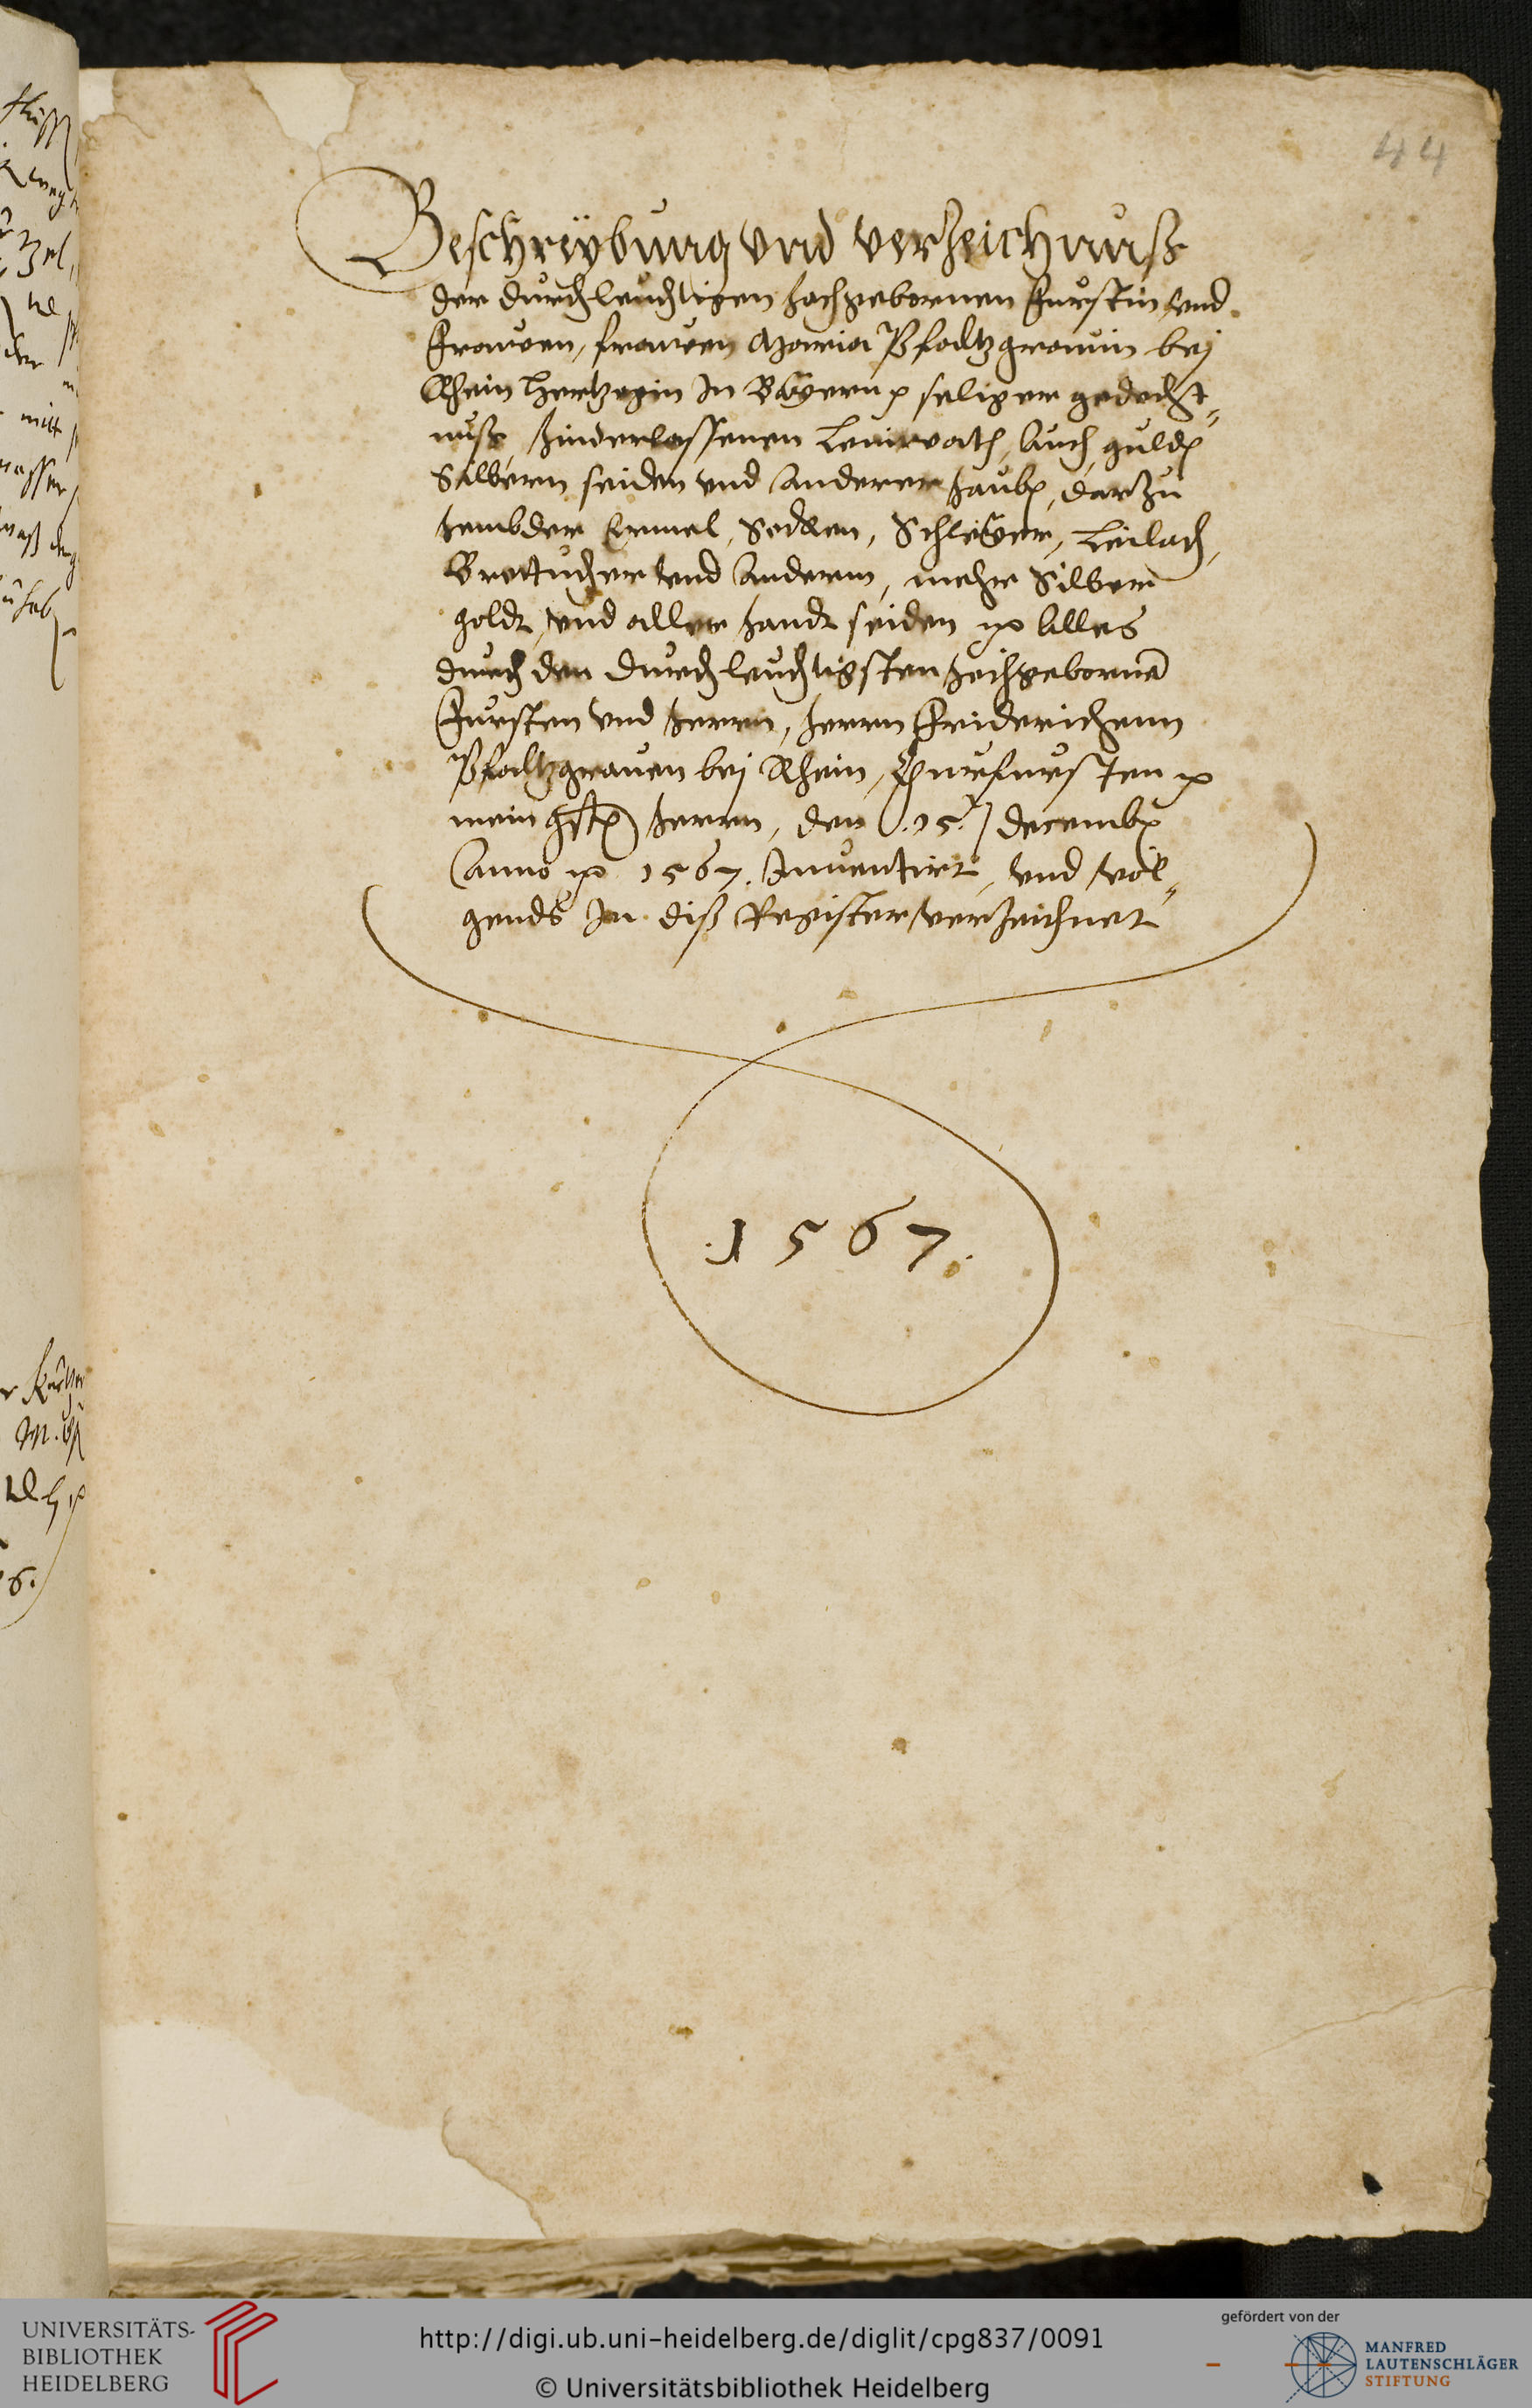 44
Beschreÿbung vnd verzeichnuß
der durchleuchtigen hochgebornen Furstin vnd
Frawen, frawen Maria Pfaltzgrauin bej
Rhein Hertzogin In Baÿern seliger gedecht„
nuß, hinderlassenen Leinwath, Auch, guld
Silbern seiden vnd Anderer haub, darzu
hembder Ermel, Sedlen, Schleÿer, Leilach,
Brottucher vnd Anderm, mehr Silber
goldt, vnd aller handt seiden Alles
durch den durchleuchtigsten hochgebornē
Fursten vnd herrn, herrn Friderichenn
Pfaltzgrauen bej Rhein, Churfursten
mein gst herrn, den .15. decemb
Anno 1567. Inuentirt, vnd vol„
gends In diß Register verzeichnet
.1567.
mitt
6.
UNIVERSITÄTS-
BIBLIOTHEK
HEIDELBERG
http://digi.ub.uni-heidelberg.de/diglit/cpg837/0091
© Universitätsbibliothek Heidelberg
gefördert von der
MANFRED
LAUTENSCHLÄGER
STIFTUNG